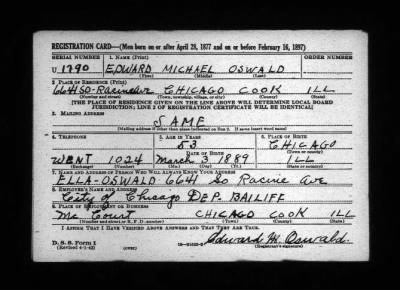 REGISTRATION CARD—(Men born on or after April 28, 1877 and on or before February 16, 1897)
SERIAL NUMBER 1. NAME (Print) ORDER NUMBER
U 1790 EDWARD MICHAEL OSWALD
(First) (Middle) (Last)
2. PLACE OF RESIDENCE (Print)
6641 So. Racine Av CHICAGO COOK ILL
(Number and street) (Town, township, village, or city) (County) (State)
[THE PLACE OF RESIDENCE GIVEN ON THE LINE ABOVE WILL DETERMINE LOCAL BOARD
JURISDICTION; LINE 2 OF REGISTRATION CERTIFICATE WILL BE IDENTICAL]
3. MAILING ADDRESS
SAME
[Mailing address if other than place indicated on line 2. If same insert word same]
4. TELEPHONE 5. AGE IN YEARS 6. PLACE OF BIRTH
53 CHICAGO
DATE OF BIRTH (Town or county)
WENT 1024 March 3 1889 ILL
(Exchange) (Number) (Mo.) (Day) (Yr.) (State or country)
7. NAME AND ADDRESS OF PERSON WHO WILL ALWAYS KNOW YOUR ADDRESS
ELLA-OSWALD 6641 So Racine Ave
8. EMPLOYER'S NAME AND ADDRESS
City of Chicago DEP. BAILIFF
9. PLACE OF EMPLOYMENT OR BUSINESS
Mc. Court CHICAGO COOK ILL
(Number and street or R. F. D. number) (Town) (County) (State)
I AFFIRM THAT I HAVE VERIFIED ABOVE ANSWERS AND THAT THEY ARE TRUE.
D. S. S. Form 1
(Revised 4-1-42) (over) Edward M. Oswald
(Registrant's signature)